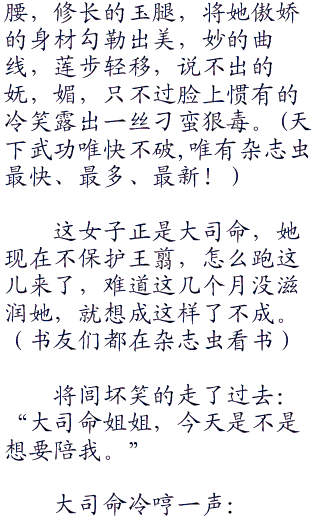 腰，修长的玉腿，将她傲娇
的身材勾勒出美，妙的曲
线，莲步轻移，说不出的
妩，媚，只不过脸上惯有的
冷笑露出一丝刁蛮狠毒。(天
下武功唯快不破,唯有杂志虫
最快、最多、最新！)
这女子正是大司命，她
现在不保护王翦，怎么跑这
儿来了，难道这几个月没滋
润她，就想成这样了不成。
（书友们都在杂志虫看书）
将闾坏笑的走了过去：
“大司命姐姐，今天是不是
想要陪我。”
大司命冷哼一声：